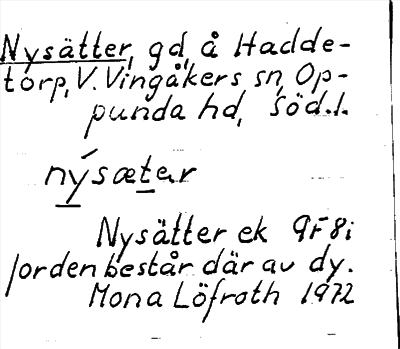 Nysätter, gd, å Hadde-
torp, V. Vingåkers sn, Op-
punda hd, Söd.l.
nýsætar
Nysätter ek 9F8i
Jorden består där av dy.
Mona Löfroth 1972